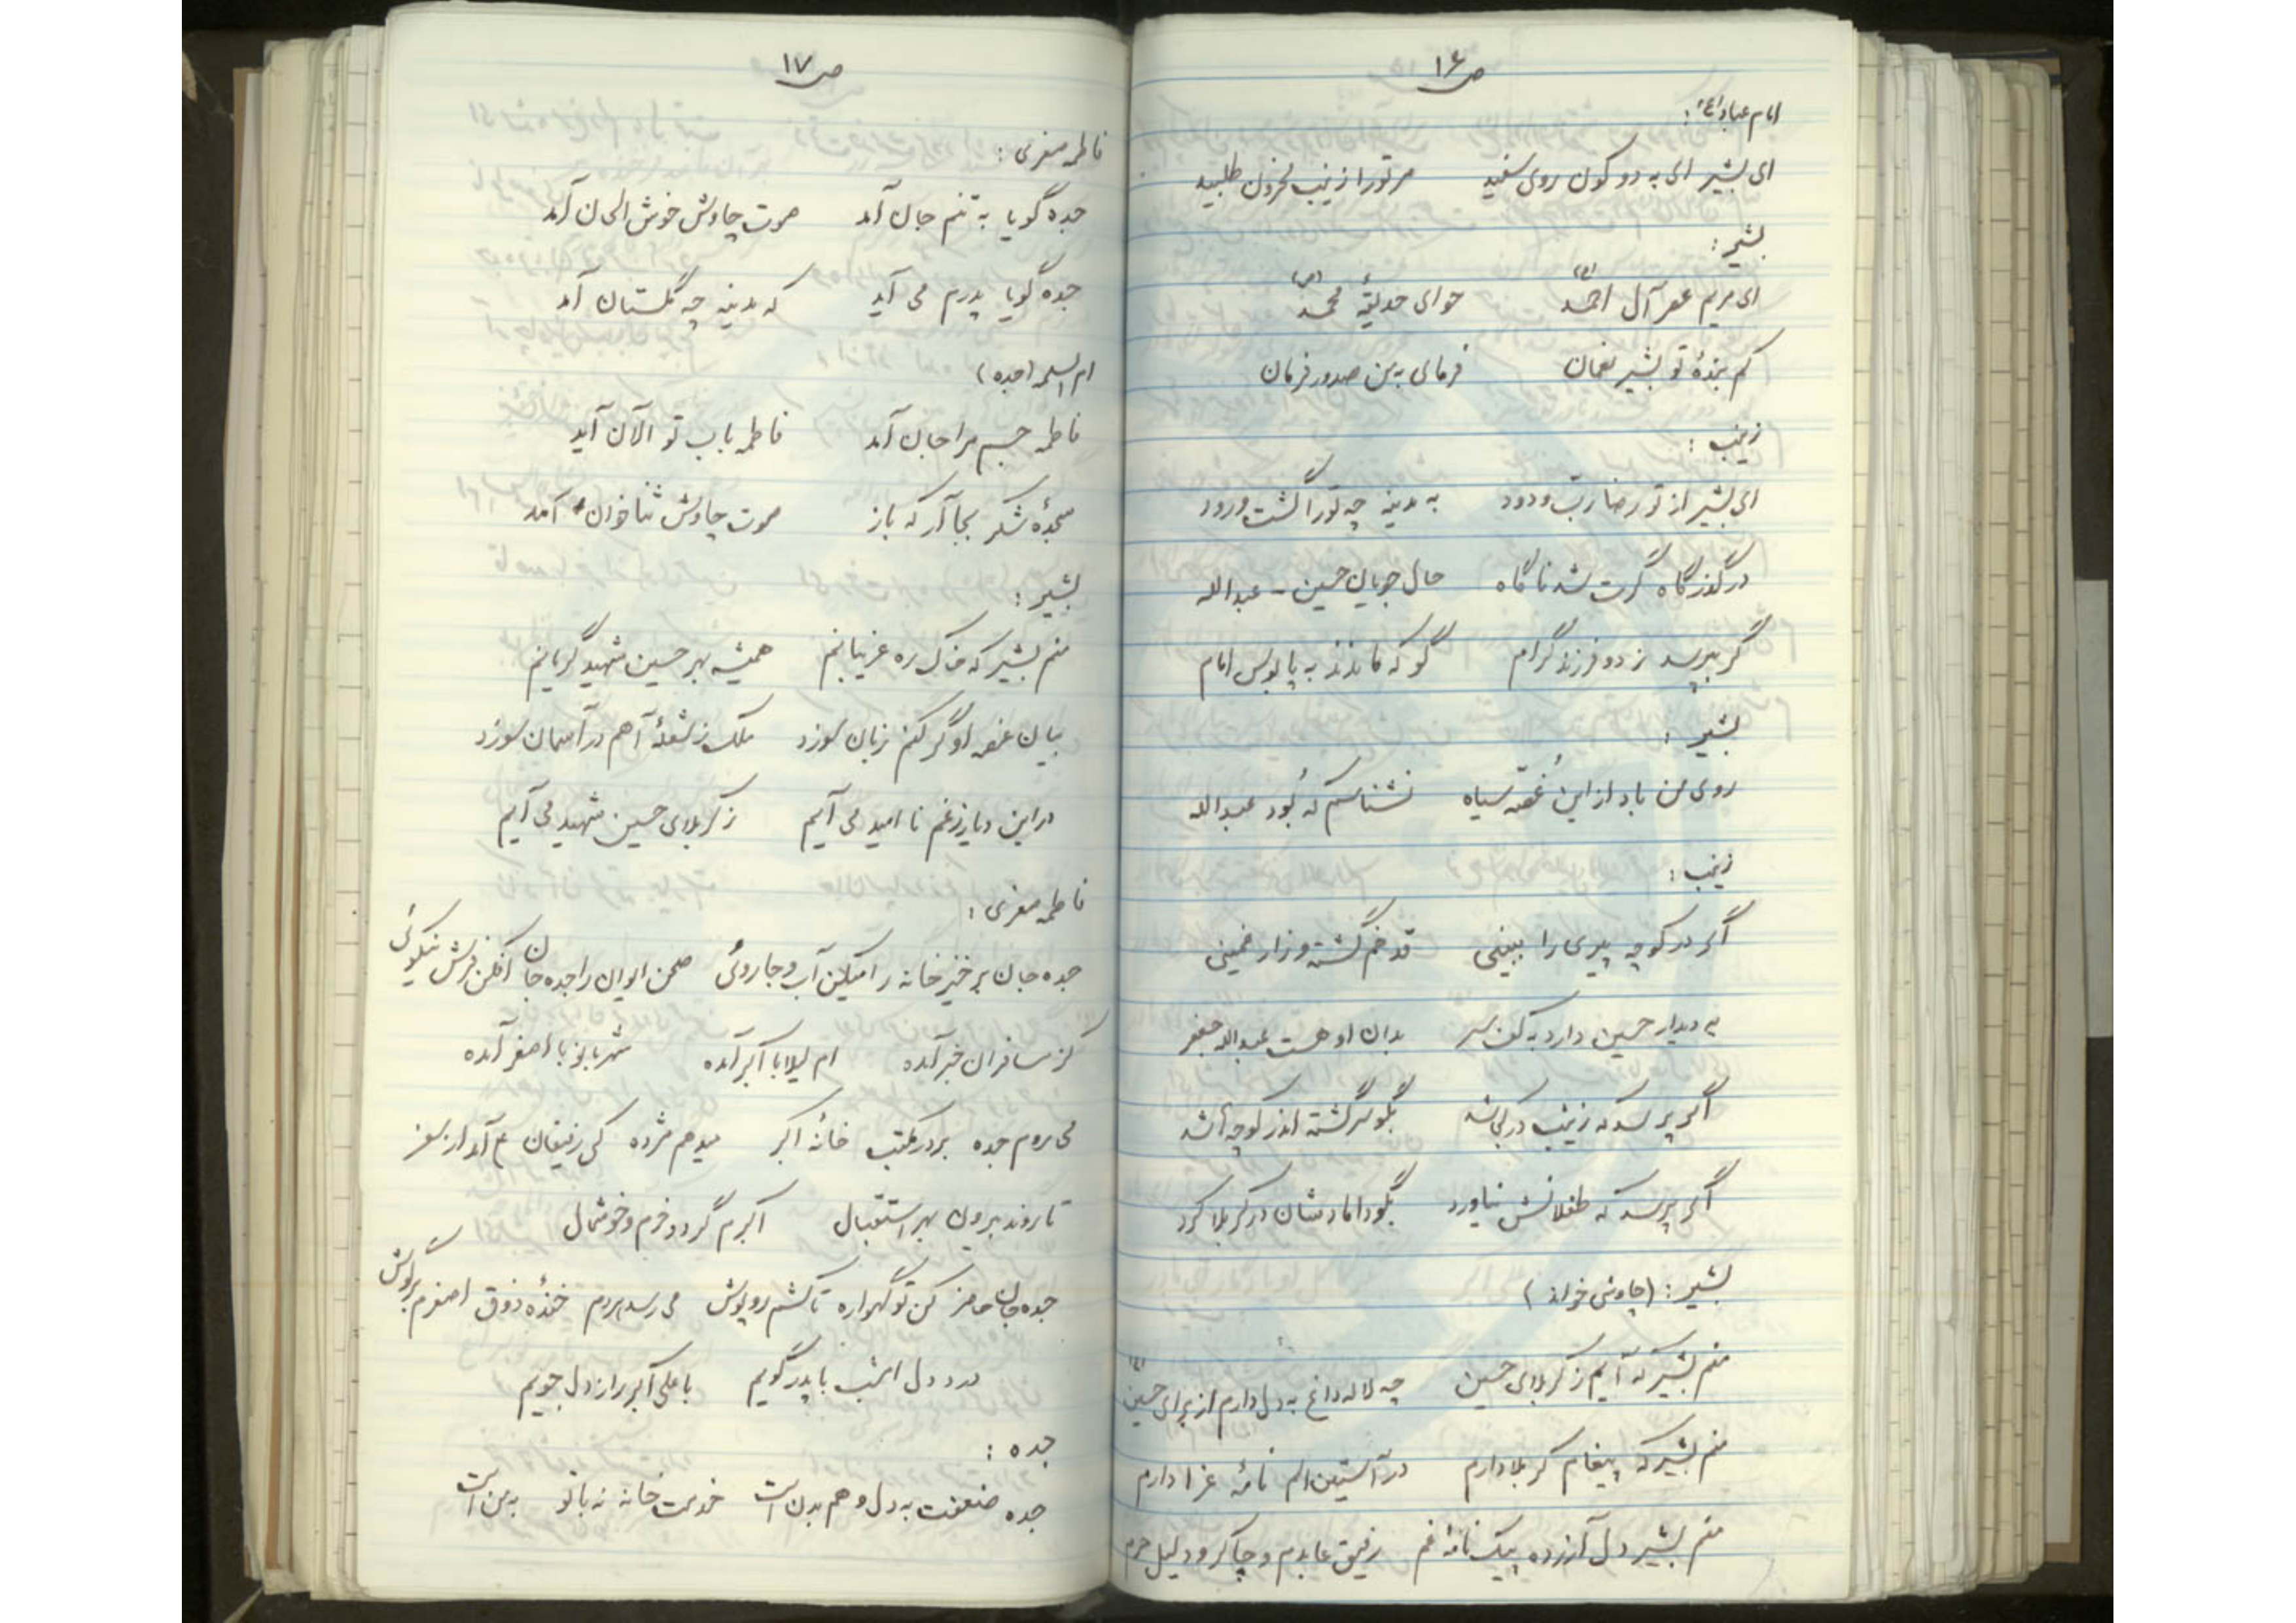 ص ۱۶
امام عباد (ع):
ای بشیر ای به دو کون روی سفید    مر تو را زینب محزون طلبید
بشیر:
ای مریم عصر آل احمد (ص)    حوای حدیقهٔ محمد (ص)
کم بندهٔ تو بشیر نعمان    فرمای به من صدور فرمان
زینب:
ای بشیر از تو رضا رب ودود    به مدینه چه تو را گشت ورود
در گذرگاه گرت شد ناگاه    حال جویان حسین - عبدالله
گر بپرسد ز دو فرزند گرام    گو که ماندند به پابوس امام
بشیر:
روی من باد از این غُصّه سیاه    نشناسم که بُوَد عبدالله
زینب:
اگر در کوچه پیری را ببینی    قد خم گشته و زار غمینی
به دیدار حسین دارد به کف سر    بدان او هست عبدالله جعفر
اگر پرسد که زینب در کجا شد    بگو سرگشته اندر کوچه‌ها شد
اگر پرسد که طفلانش نیاورد    بگو دامادشان در کربلا کرد
بشیر: (چاوشی خواند)
منم بشیر که آیم ز کربلای حسین    چه لاله داغ به دل دارم از برای حسین (ع)
منم بشیر که پیغام کربلا دارم    در آستین الم نامهٔ عزا دارم
منم بشیر دل آزرده پیک نامهٔ غم    رفیق عابدم و چاکر و دلیل حرم
ص ۱۷
فاطمه صغری:
جده گویا به تنم جان آمد    صوت چاوش خوش الحان آمد
جده گویا پدرم می آید    که مدینه چه گلستان آمد
ام السلمه (جده)
فاطمه جسم مرا جان آمد    فاطمه باب تو الآن آید
سجدهٔ شکر بجا آر که باز    صوت چاوش ثناخوان آمد
بشیر:
منم بشیر که خاک ره غریبانم    همیشه بهر حسین شهید گریانم
بیان غصه او گر کنم زبان سوزد    ملک ز شعلهٔ آهم در آسمان سوزد
در این دیار ز غم نا امید می آیم    ز کربلای حسین شهید می آیم
فاطمه صغری:
جده جان برخیز خانه را میکن آب و جاروئی    صحن ایوان را جده جان افکن فرش نیکوئی
کز مسافران خبر آمده    ام لیلا با اکبر آمده    شهربانو با اصغر آمده
می روم جده بر در مکتب خانهٔ اکبر    میدهم مژده کی رفیقان عم آمد از سفر
تا روند بیرون بهر استقبال    اکبرم گردد خرم و خوشحال
جده جان حاضر کن تو گهواره تا کشم روپوش    می رسد بردم خندهٔ ذوق اصغرم بر گوش
درد دل امشب با پدر گویم    با علی اکبر راز دل جویم
جده:
جده ضعفت به دل و هم بدن است    خدمت خانه نه با تو به من است